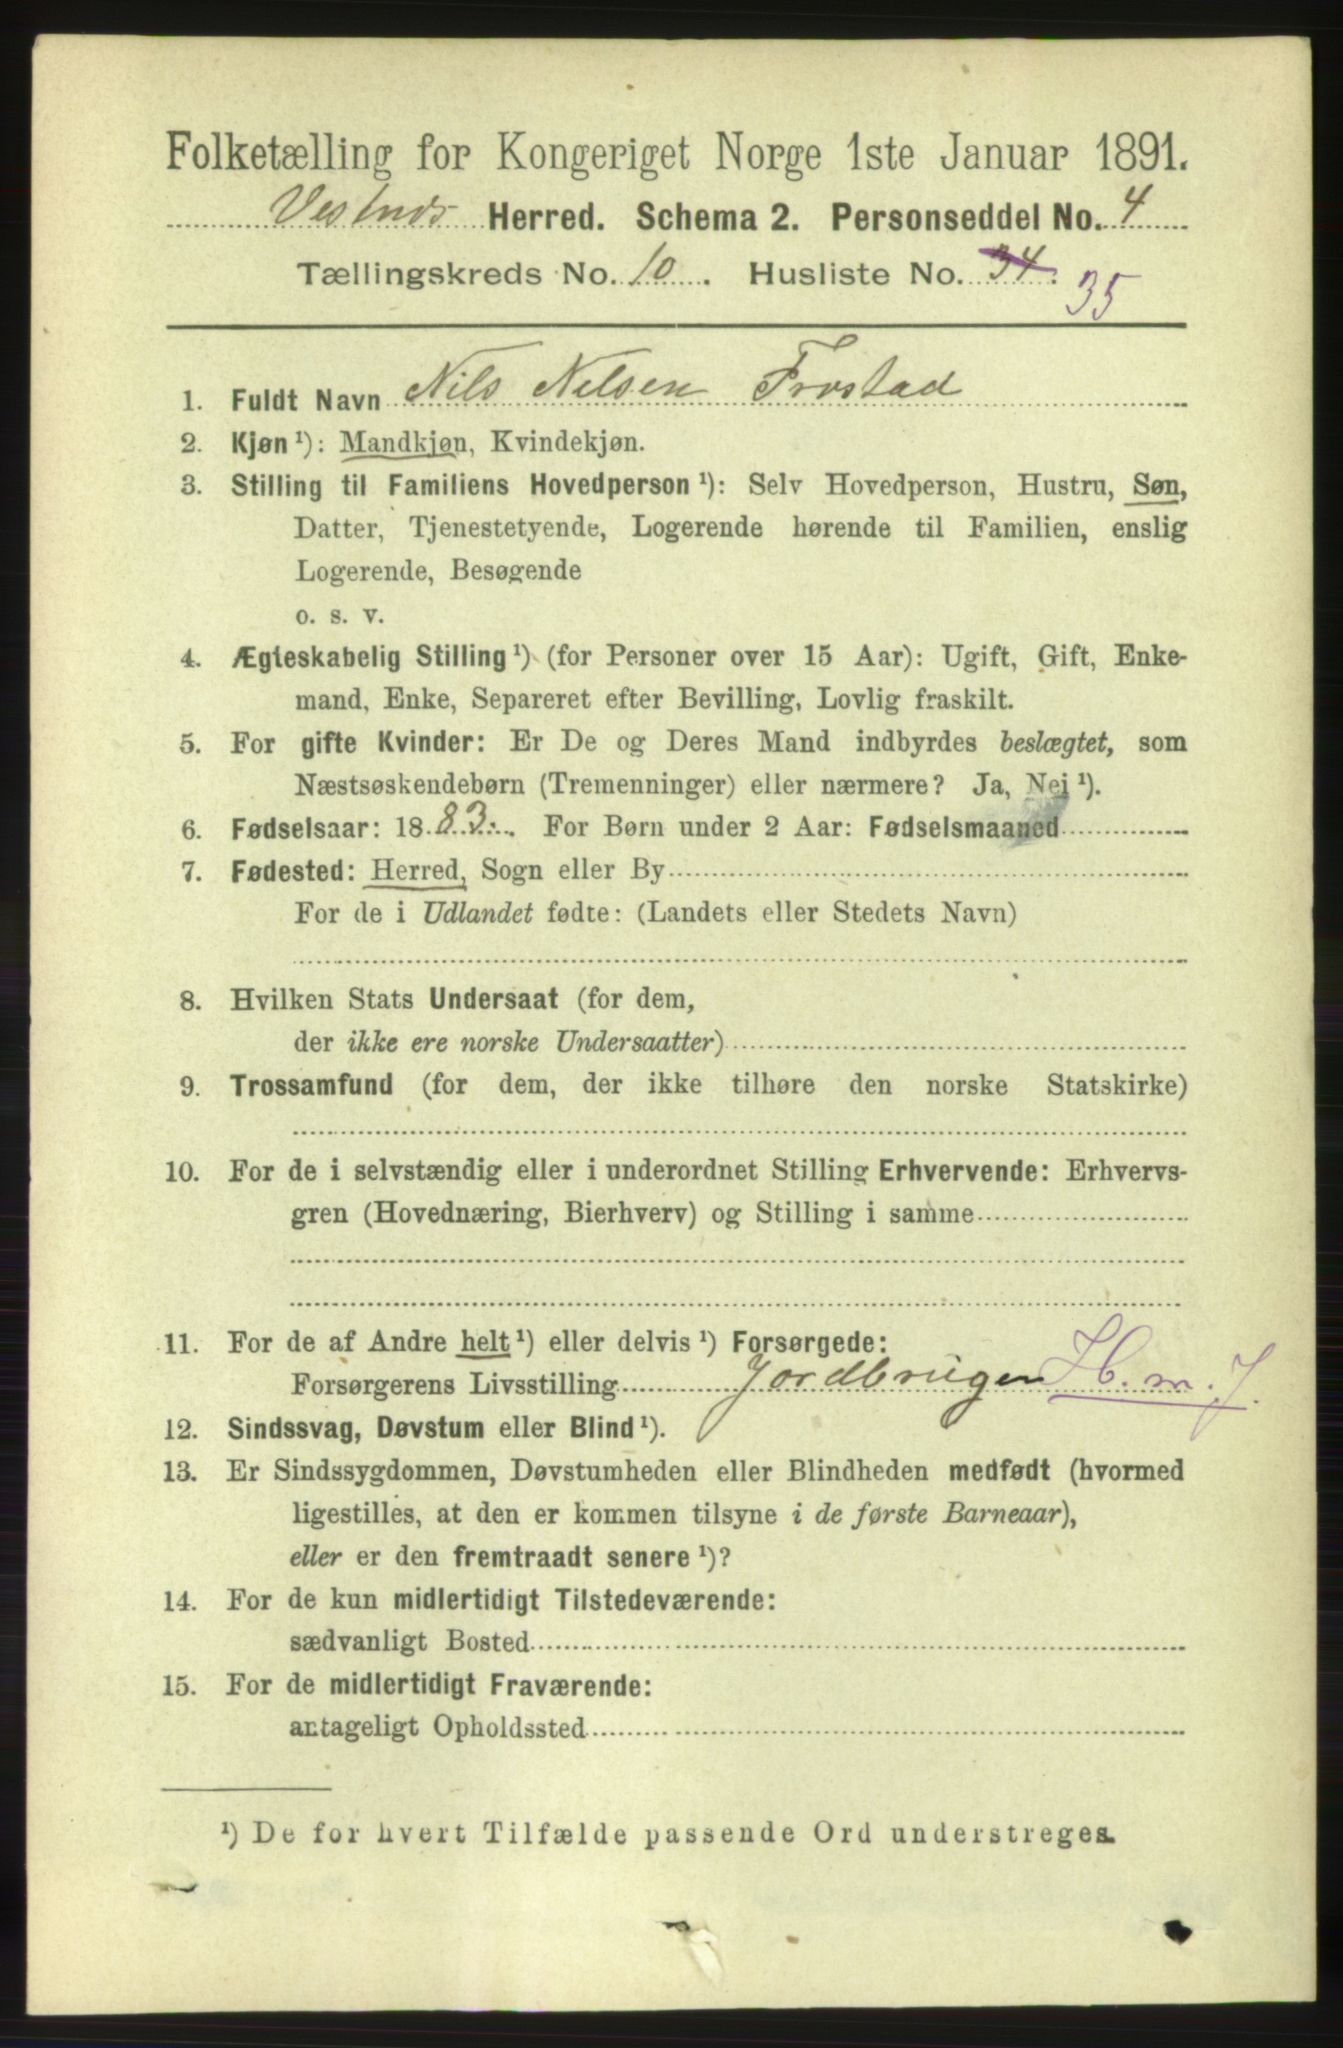 Folketælling for Kongeriget Norge 1ste Januar 1891.
Vestnes Herred. Schema 2. Personseddel No. 4
Tællingskreds No. 10. Husliste No. 34. 35
1. Fuldt Navn Nils Nelsen Frostad
2. Kjøn ¹): Mandkjøn, Kvindekjøn.
3. Stilling til Familiens Hovedperson ¹): Selv Hovedperson, Hustru, Søn,
Datter, Tjenestetyende, Logerende hørende til Familien, enslig
Logerende, Besøgende
o. s. v.
4. Ægteskabelig Stilling ¹) (for Personer over 15 Aar): Ugift, Gift, Enke-
mand, Enke, Separeret efter Bevilling, Lovlig fraskilt.
5. For gifte Kvinder: Er De og Deres Mand indbyrdes beslægtet, som
Næstsøskendebørn (Tremenninger) eller nærmere? Ja, Nei ¹).
6. Fødselsaar: 1883. For Børn under 2 Aar: Fødselsmaaned
7. Fødested: Herred, Sogn eller By
For de i Udlandet fødte: (Landets eller Stedets Navn)
8. Hvilken Stats Undersaat (for dem,
der ikke ere norske Undersaatter)
9. Trossamfund (for dem, der ikke tilhøre den norske Statskirke)
10. For de i selvstændig eller i underordnet Stilling Erhvervende: Erhvervs-
gren (Hovednæring, Bierhverv) og Stilling i samme
11. For de af Andre helt ¹) eller delvis ¹) Forsørgede:
Forsørgerens Livsstilling Jordbrugen Hb. m. J.
12. Sindssvag, Døvstum eller Blind ¹).
13. Er Sindssygdommen, Døvstumheden eller Blindheden medfødt (hvormed
ligestilles, at den er kommen tilsyne i de første Barneaar),
eller er den fremtraadt senere ¹)?
14. For de kun midlertidigt Tilstedeværende:
sædvanligt Bosted
15. For de midlertidigt Fraværende:
antageligt Opholdssted
¹) De for hvert Tilfælde passende Ord understreges.